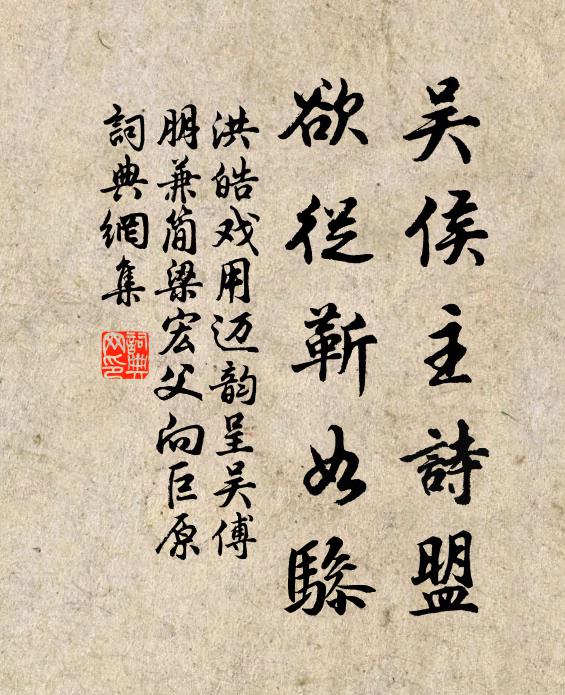 吴侯主詩盟
欲從靳如驂
洪皓戏用迈韵呈吴傅
朋兼简梁宏父向巨原
詞典網集
詞典網印